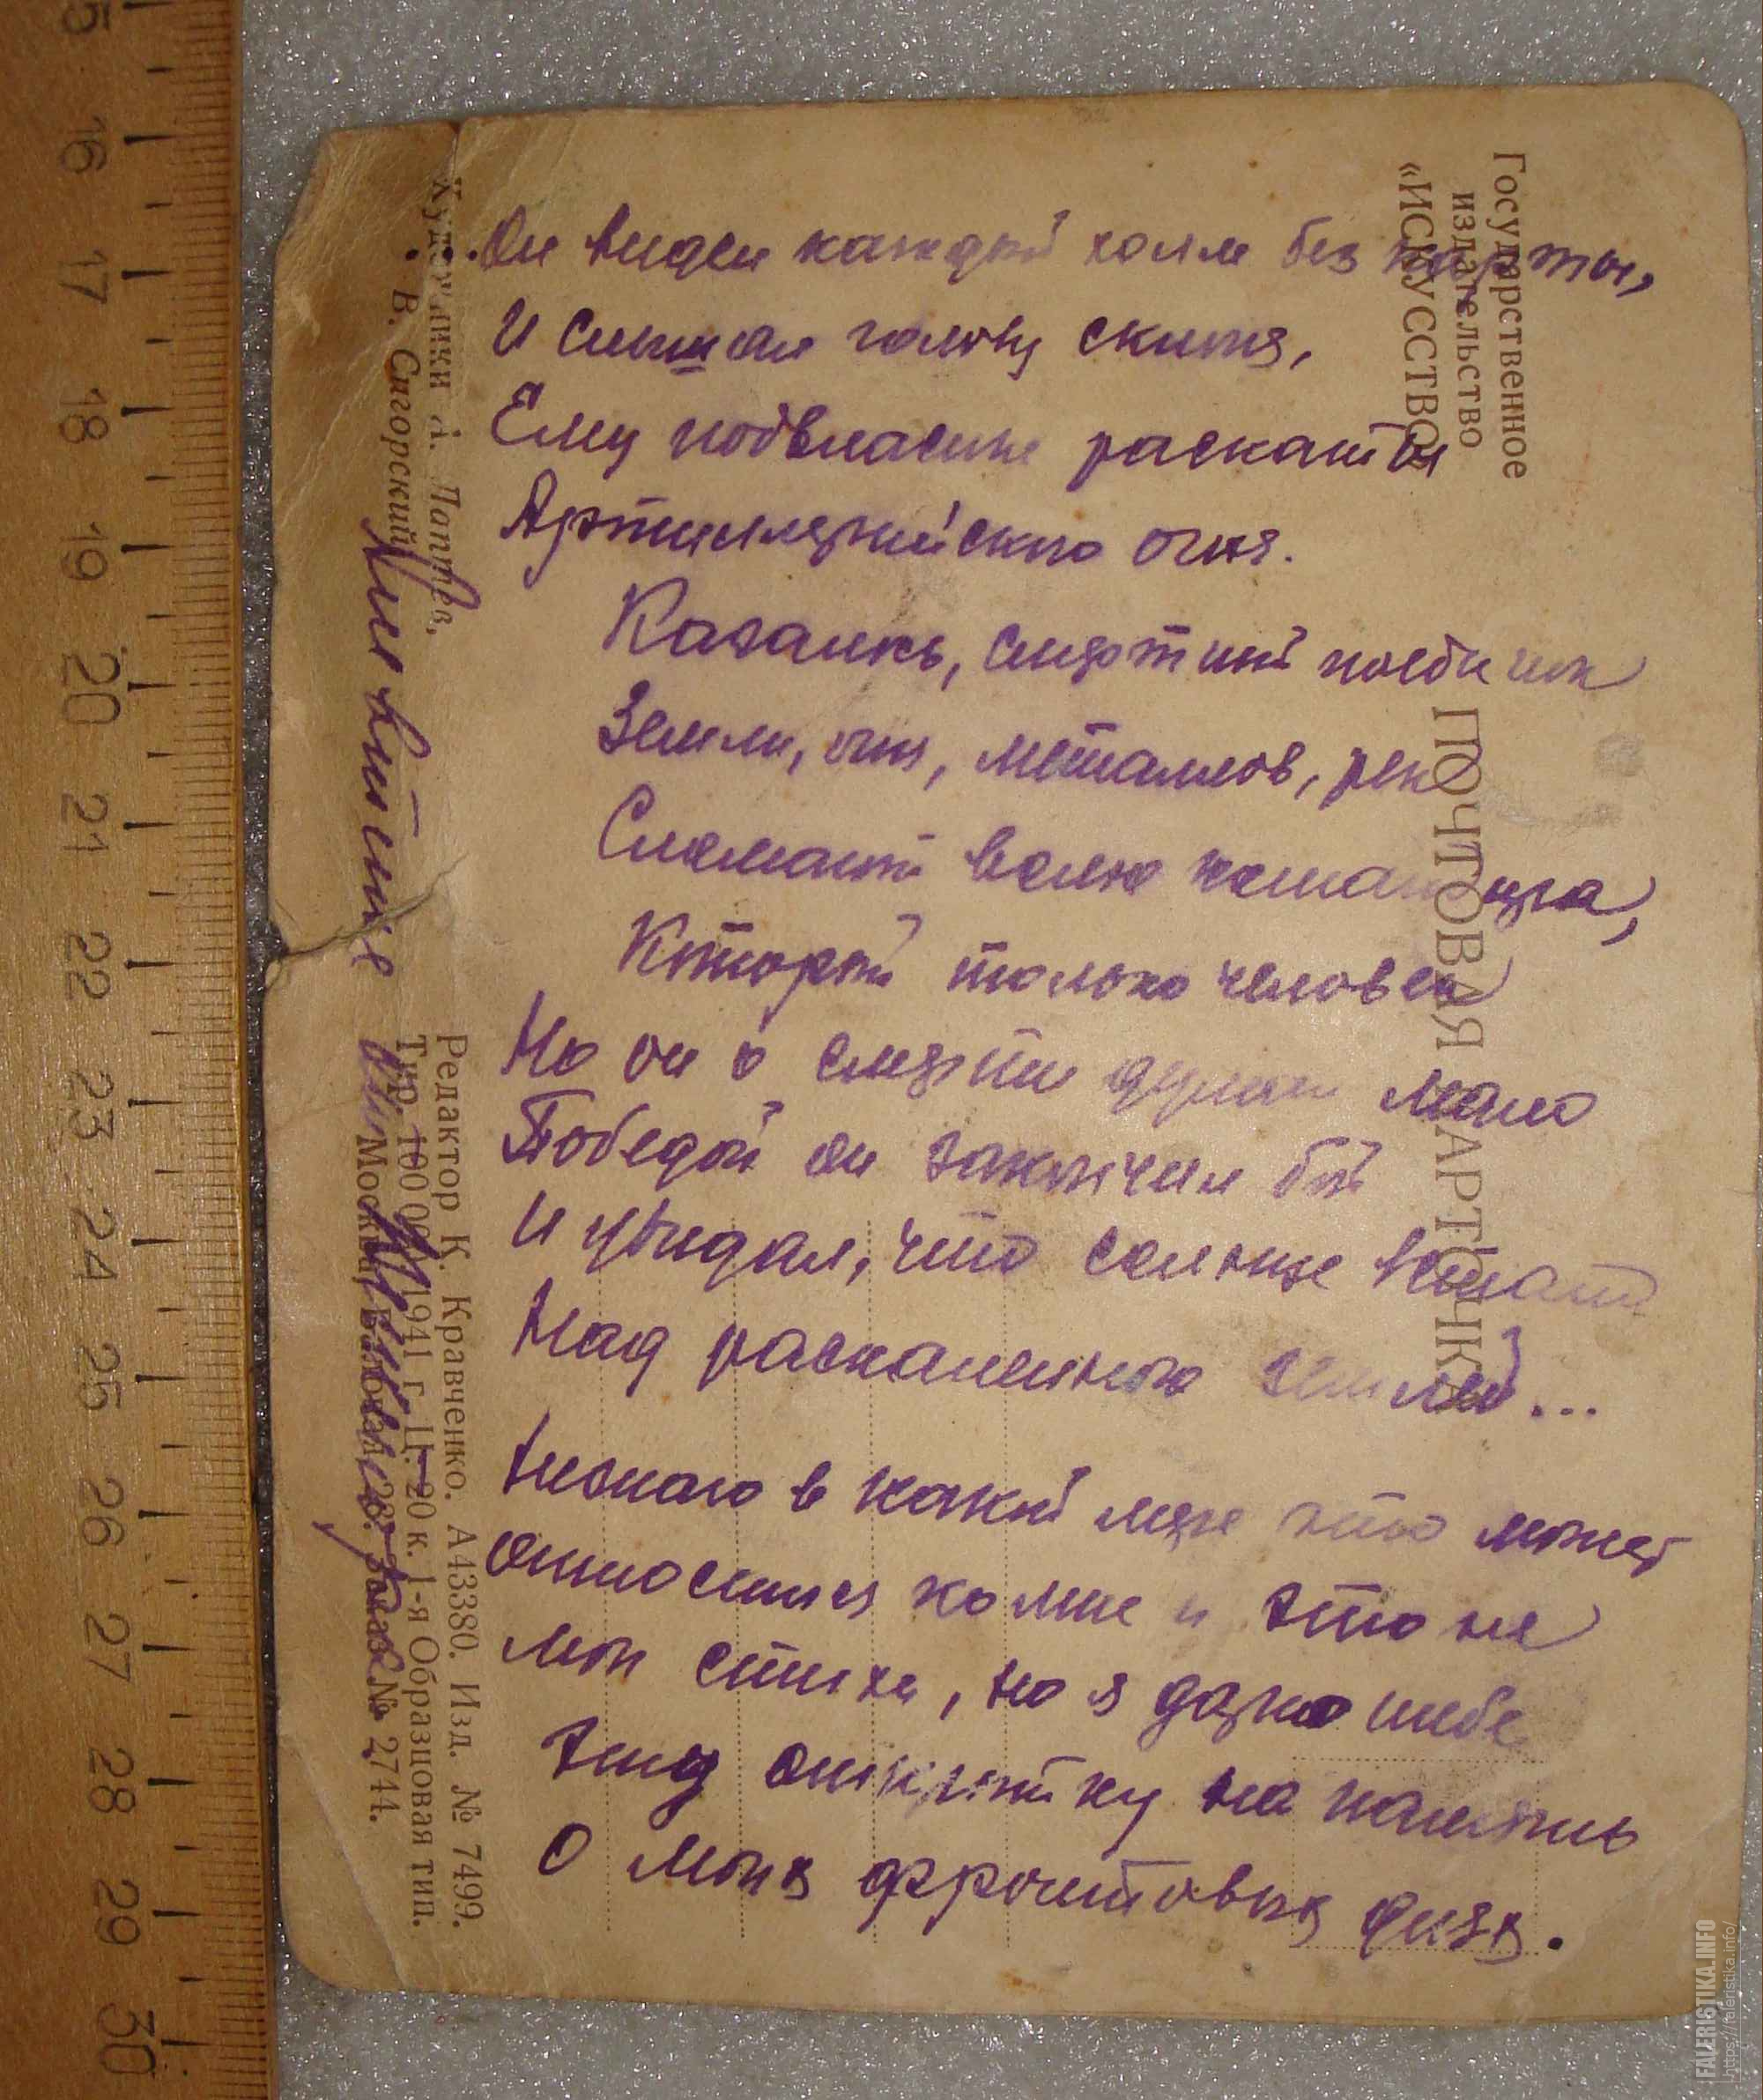 Он видел каждый холм без карты,
И слышал голову скитя,
Ему подвластны раскаты
Артиллерийского огня.
Казалось, смертный поединок
Земли, огня, металлов, рек
Сломает волю командира,
Который только человек
Но он о смерти думал мало
Победой он закончил бой
И увидал, что солнце встало
Над раскаленною землей...
Незнаю в какой мере это может
относится ко мне и это не
мои стихи, но я дарю тебе
эту открытку на память
О моих фронтовых днях.
Государственное
издательство
«ИСКУССТВО»
ПОЧТОВАЯ КАРТОЧКА
Художники А. Лаптев,
В. Сигорский
Редактор К. Кравченко. А43380. Изд. № 7499.
Тир. 100 000 1941 г. Ц. 20 к. 1-я Образцовая тип.
Москва, Валовая, 28. Заказ № 2744.
FALERISTIKA.INFO
https://faleristika.info/